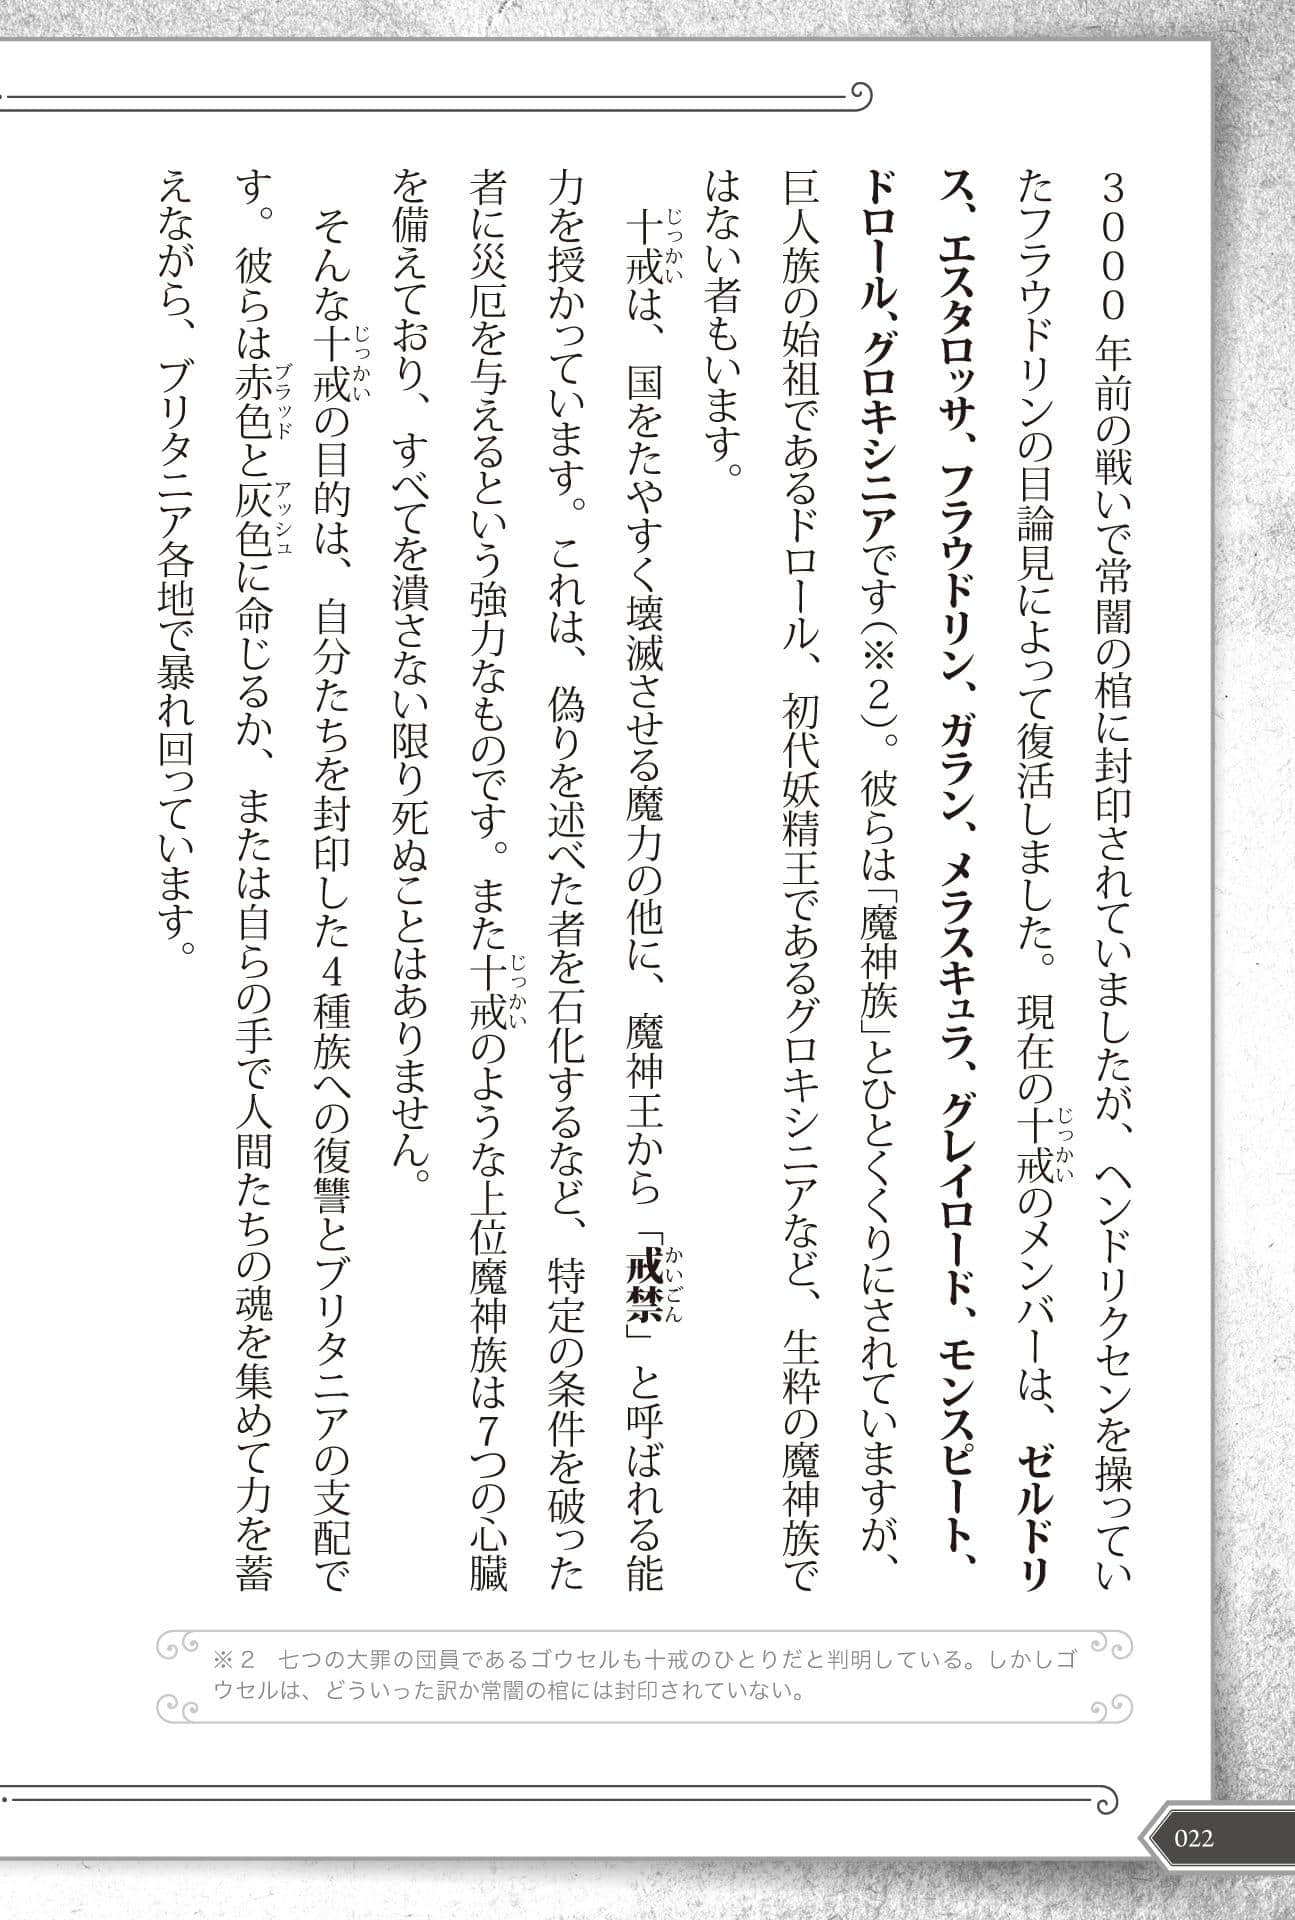 3000年前の戦いで常闇の棺に封印されていましたが、ヘンドリクセンを操ってい
たフラウドリンの目論見によって復活しました。現在の十戒のメンバーは、ゼルドリ
ス、エスタロッサ、フラウドリン、ガラン、メラスキュラ、グレイロード、モンスピート、
ドロール、グロキシニアです(※2)。彼らは「魔神族」とひとくくりにされていますが、
巨人族の始祖であるドロール、初代妖精王であるグロキシニアなど、生粋の魔神族で
はない者もいます。
十戒は、国をたやすく壊滅させる魔力の他に、魔神王から「戒禁」と呼ばれる能
力を授かっています。これは、偽りを述べた者を石化するなど、特定の条件を破った
者に災厄を与えるという強力なものです。また十戒のような上位魔神族は7つの心臓
を備えており、すべてを潰さない限り死ぬことはありません。
そんな十戒の目的は、自分たちを封印した4種族への復讐とブリタニアの支配で
す。彼らは赤色と灰色に命じるか、または自らの手で人間たちの魂を集めて力を蓄
えながら、ブリタニア各地で暴れ回っています。
じっかい
じっかい
かいごん
じっかい
じっかい
ブラッド
アッシュ
※2 七つの大罪の団員であるゴウセルも十戒のひとりだと判明している。しかしゴ
ウセルは、どういった訳か常闇の棺には封印されていない。
022